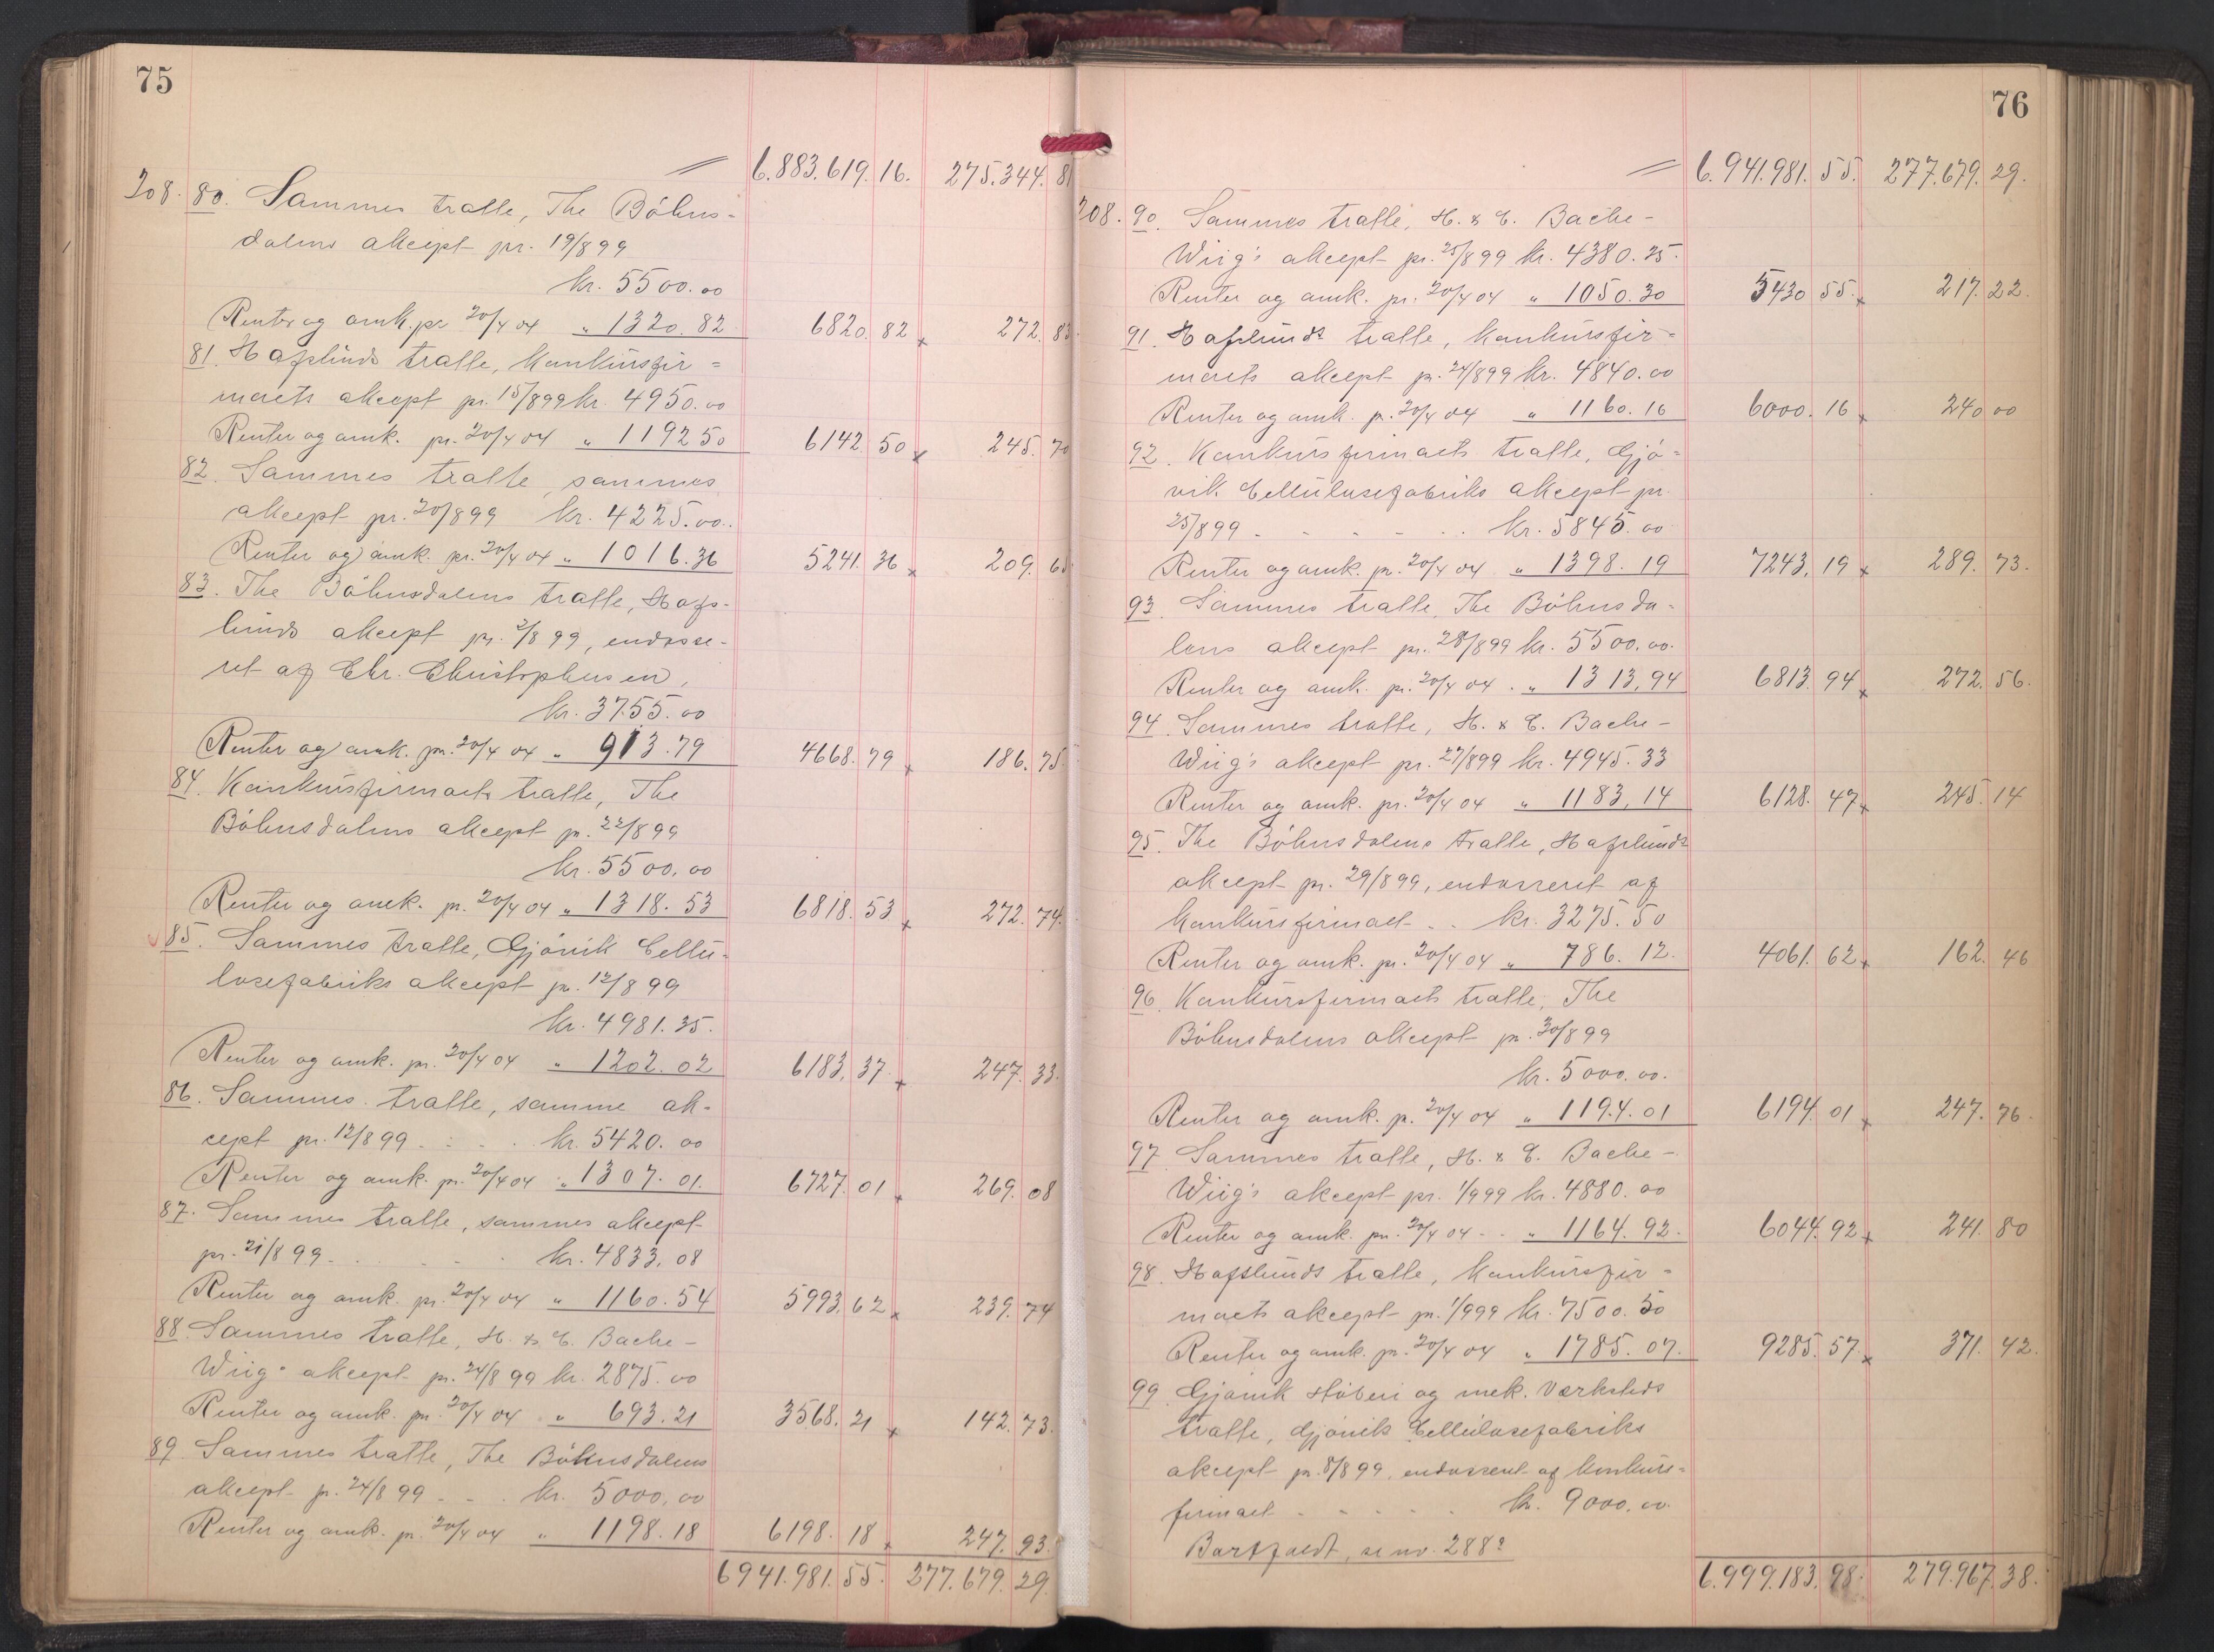 75
6.883.619.16. 275.344.81
208. 80. Sammes tratte, The Böhns-
dalens akcept pr. 19/8 99
kr. 5500.00
Renter og omk. pr 20/4 04 " 1320.82 6820.82 x 272.83
81. Hafslunds tratte, konkursfir=
maets akcept pr. 15/8 99 kr. 4950.00
Renter og omk. pr. 20/4 04 " 1192 50 6142 50 x 245.70
82. Sammes tratte, sammes
akcept pr. 20/8 99 kr. 4225.00.
Renter og omk. pr. 20/4 04 " 1016.36 5241.36 x 209.65
83. The Böhnsdalens tratte, Hafs-
lunds akcept pr. 2/8 99, endosse-
ret af Chr. Christophersen,
kr. 3755.00
Renter og omk. pr. 20/4 04 " 913.79 4668.79 x 186.75
84. Konkursfirmaets tratte, The
Böhnsdalens akcept pr. 22/8 99
kr. 5500.00
Renter og omk. pr. 20/4 04 " 1318.53 6818.53 x 272.74.
85. Sammes tratte, Gjövik Cellu-
losefabriks akcept pr. 12/8 99
kr. 4981.35.
Renter og omk. pr. 20/4 04 " 1202.02 6183.37 x 247.33.
86. Sammes tratte, samme ak-
cept pr. 12/8 99 . . . kr. 5420.00
Renter og omk. pr. 20/4 04 " 1307.01. 6727.01 x 269.08
87. Sammes tratte, sammes akcept
pr. 21/8 99 . . . . . kr. 4833.08
Renter og omk. pr. 20/4 04 " 1160.54 5993.62 x 239.74
88. Sammes tratte, H. & C. Bache-
Wiig's akcept pr. 24/8 99 kr. 2875.00
Renter og omk. pr. 20/4 04 " 693.21 3568.21 x 142.73.
89. Sammes tratte, The Böhnsdalens
akcept pr. 24/8 99 . . . kr. 5000.00
Renter og omk. pr. 20/4 04 " 1198.18 6198.18 x 247.93.
6941.981.55. 277.679.29.
76
6.941.981.55. 277.679.29.
208. 90. Sammes tratte, H. & C. Bache-
Wiig's akcept pr. 25/8 99 kr. 4380.25.
Renter og omk. pr. 20/4 04 " 1050.30 5430.55. x 217.22.
91. Hafslunds tratte, konkursfir=
maets akcept pr. 24/8 99 kr. 4840.00
Renter og omk. pr. 20/4 04 " 1160.16 6000.16 x 240.00
92. Konkursfirmaets tratte, Gjö=
vik Cellulosefabriks akcept pr.
25/8 99 . . . . . . kr. 5845.00
Renter og omk. pr. 20/4 04 " 1398.19 7243.19 x 289.73.
93. Sammes tratte, The Böhnsda-
lens akcept pr. 28/8 99 kr. 5500.00.
Renter og omk. pr. 20/4 04 . " 1313.94 6813.94 x 272.56.
94. Sammes tratte, H. & C. Bache-
Wiig's akcept pr. 27/8 99 kr. 4945.33
Renter og omk. pr. 20/4 04 " 1183.14 6128.47 x 245.14
95. The Böhnsdalens tratte, Hafslunds
akcept pr. 29/8 99, endosseret af
konkursfirmaet . . kr. 3275.50
Renter og omk. pr. 20/4 04 " 786.12. 4061.62 x 162.46
96. Konkursfirmaets tratte, The
Böhnsdalens akcept pr. 30/8 99
kr. 5000.00.
Renter og omk. pr. 20/4 04 " 1194.01 6194.01 x 247.76.
97. Sammes tratte, H. & C. Bache-
Wiig's akcept pr. 1/9 99 kr. 4880.00
Renter og omk. pr. 20/4 04 . . " 1164.92. 6044.92 x 241.80
98. Hafslunds tratte, konkursfir=
maets akcept pr. 1/9 99 kr. 7500.50
Renter og omk. pr. 20/4 04 " 1785.07. 9285.57. x 371.42.
99. Gjövik støberi og mek. Værksteds
tratte, Gjövik Cellulosefabriks
akcept pr. 8/8 99, endosseret af konkurs=
firmaet . . . . . kr. 9000.00.
Bortfaldt, se no. 288?
6.999.183.98. 279.967.38.